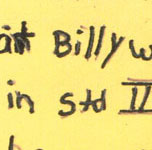 at Billy w
in std II